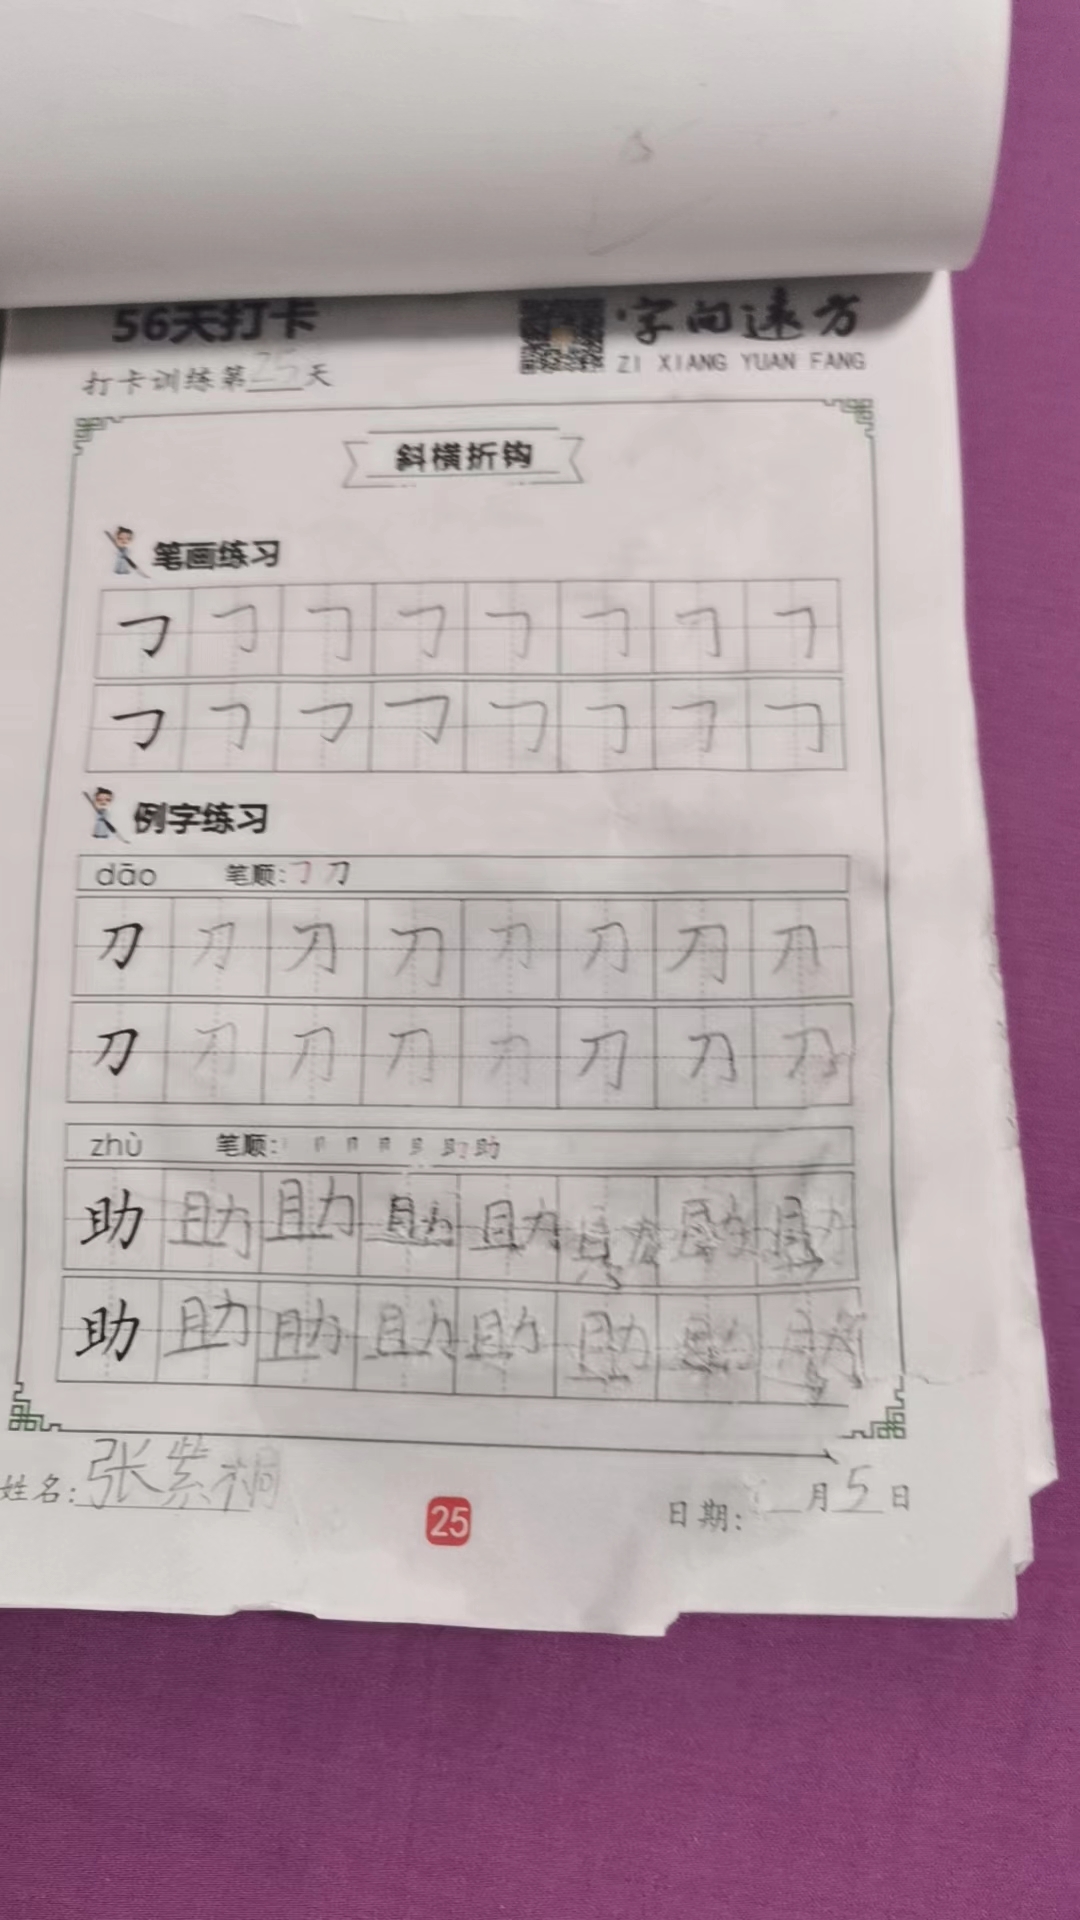 56天打卡
字向远方
ZI XIANG YUAN FANG
打卡训练第25天
斜横折钩
笔画练习
例字练习
dāo 笔顺: 刀
刀 刀 刀 刀 刀 刀 刀 刀
刀 刀 刀 刀 刀 刀 刀 刀
zhù 笔顺: 助
助 助 助 助 助 助 助 助
助 助 助 助 助 助 助 助
姓名: 张紫桐
25
日期: 月5日